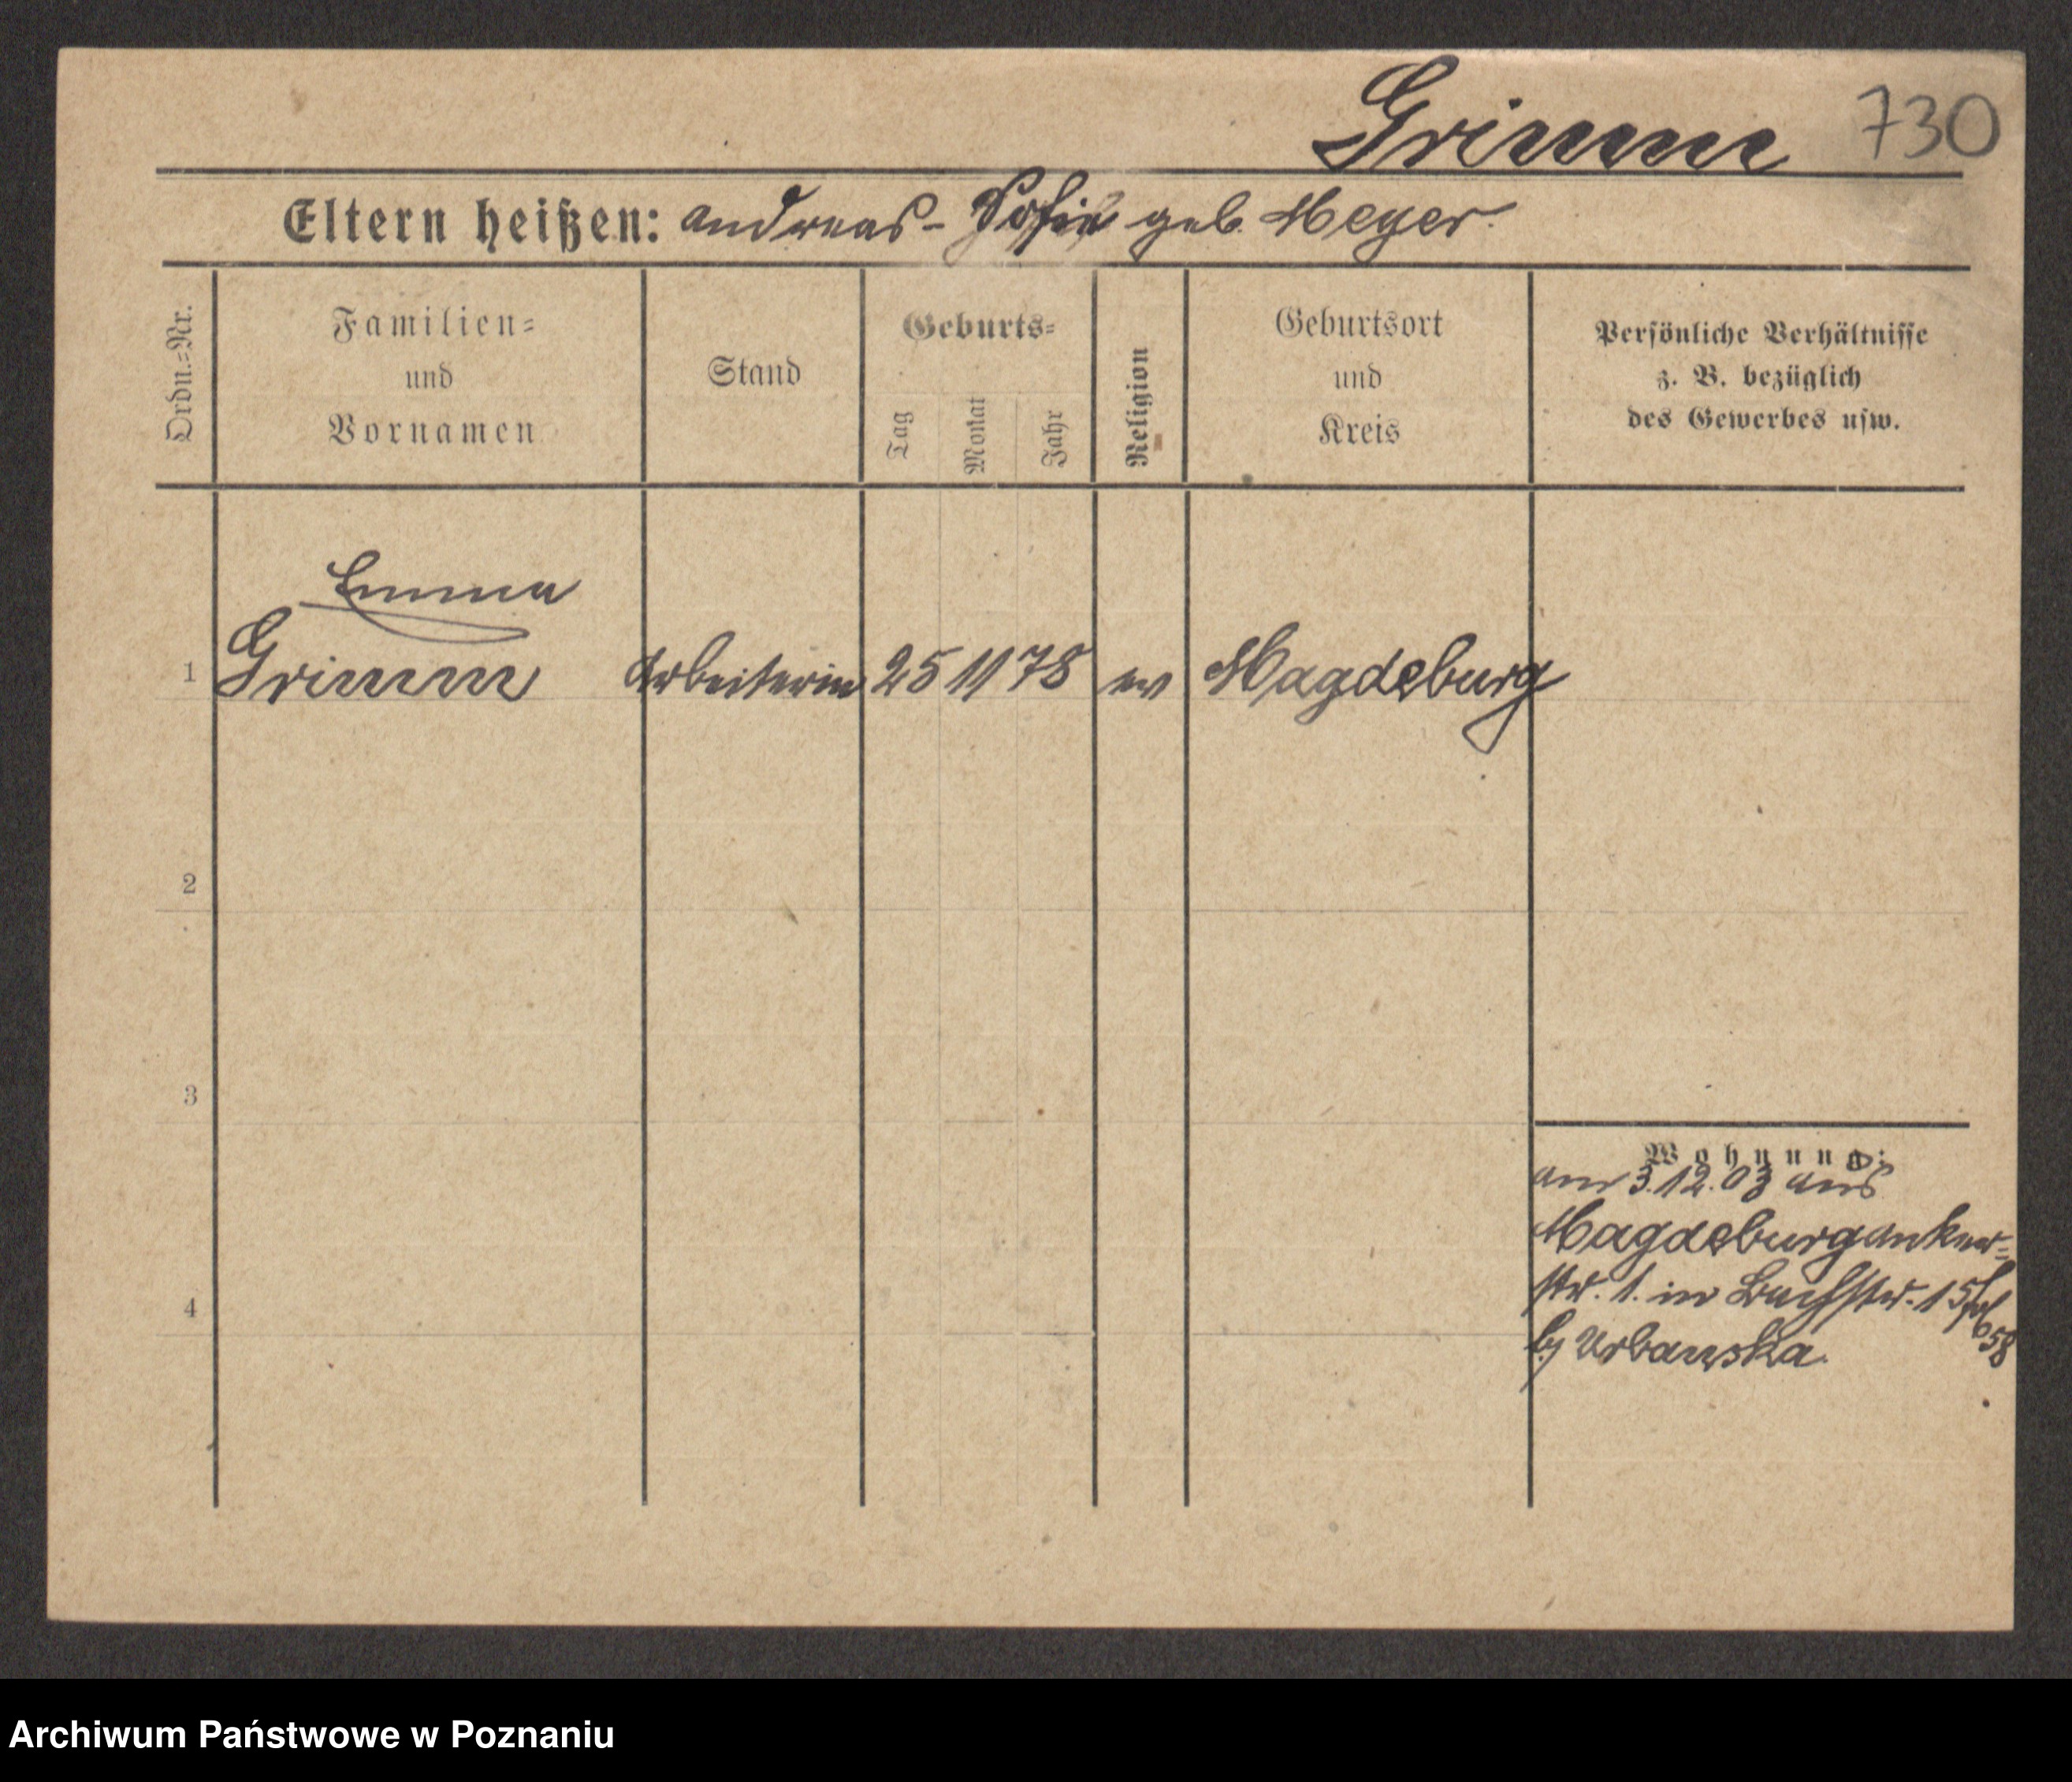 Grimm 730
Eltern heißen: Andreas - Sofie geb. Meyer.
Ordn.=Nr.
Familien=
und
Vornamen
Stand
Geburts=
Tag
Monat
Jahr
Religion
Geburtsort
und
Kreis
Persönliche Verhältnisse
z. B. bezüglich
des Gewerbes usw.
Emma
1 Grimm Arbeiterin 25 11 78 ev Magdeburg
2
3
4
Wohnung:
am 3.12.03 aus
Magdeburg Anker=
str. 1. in Bachstr. 15
bj Urbanska.
58
Archiwum Państwowe w Poznaniu